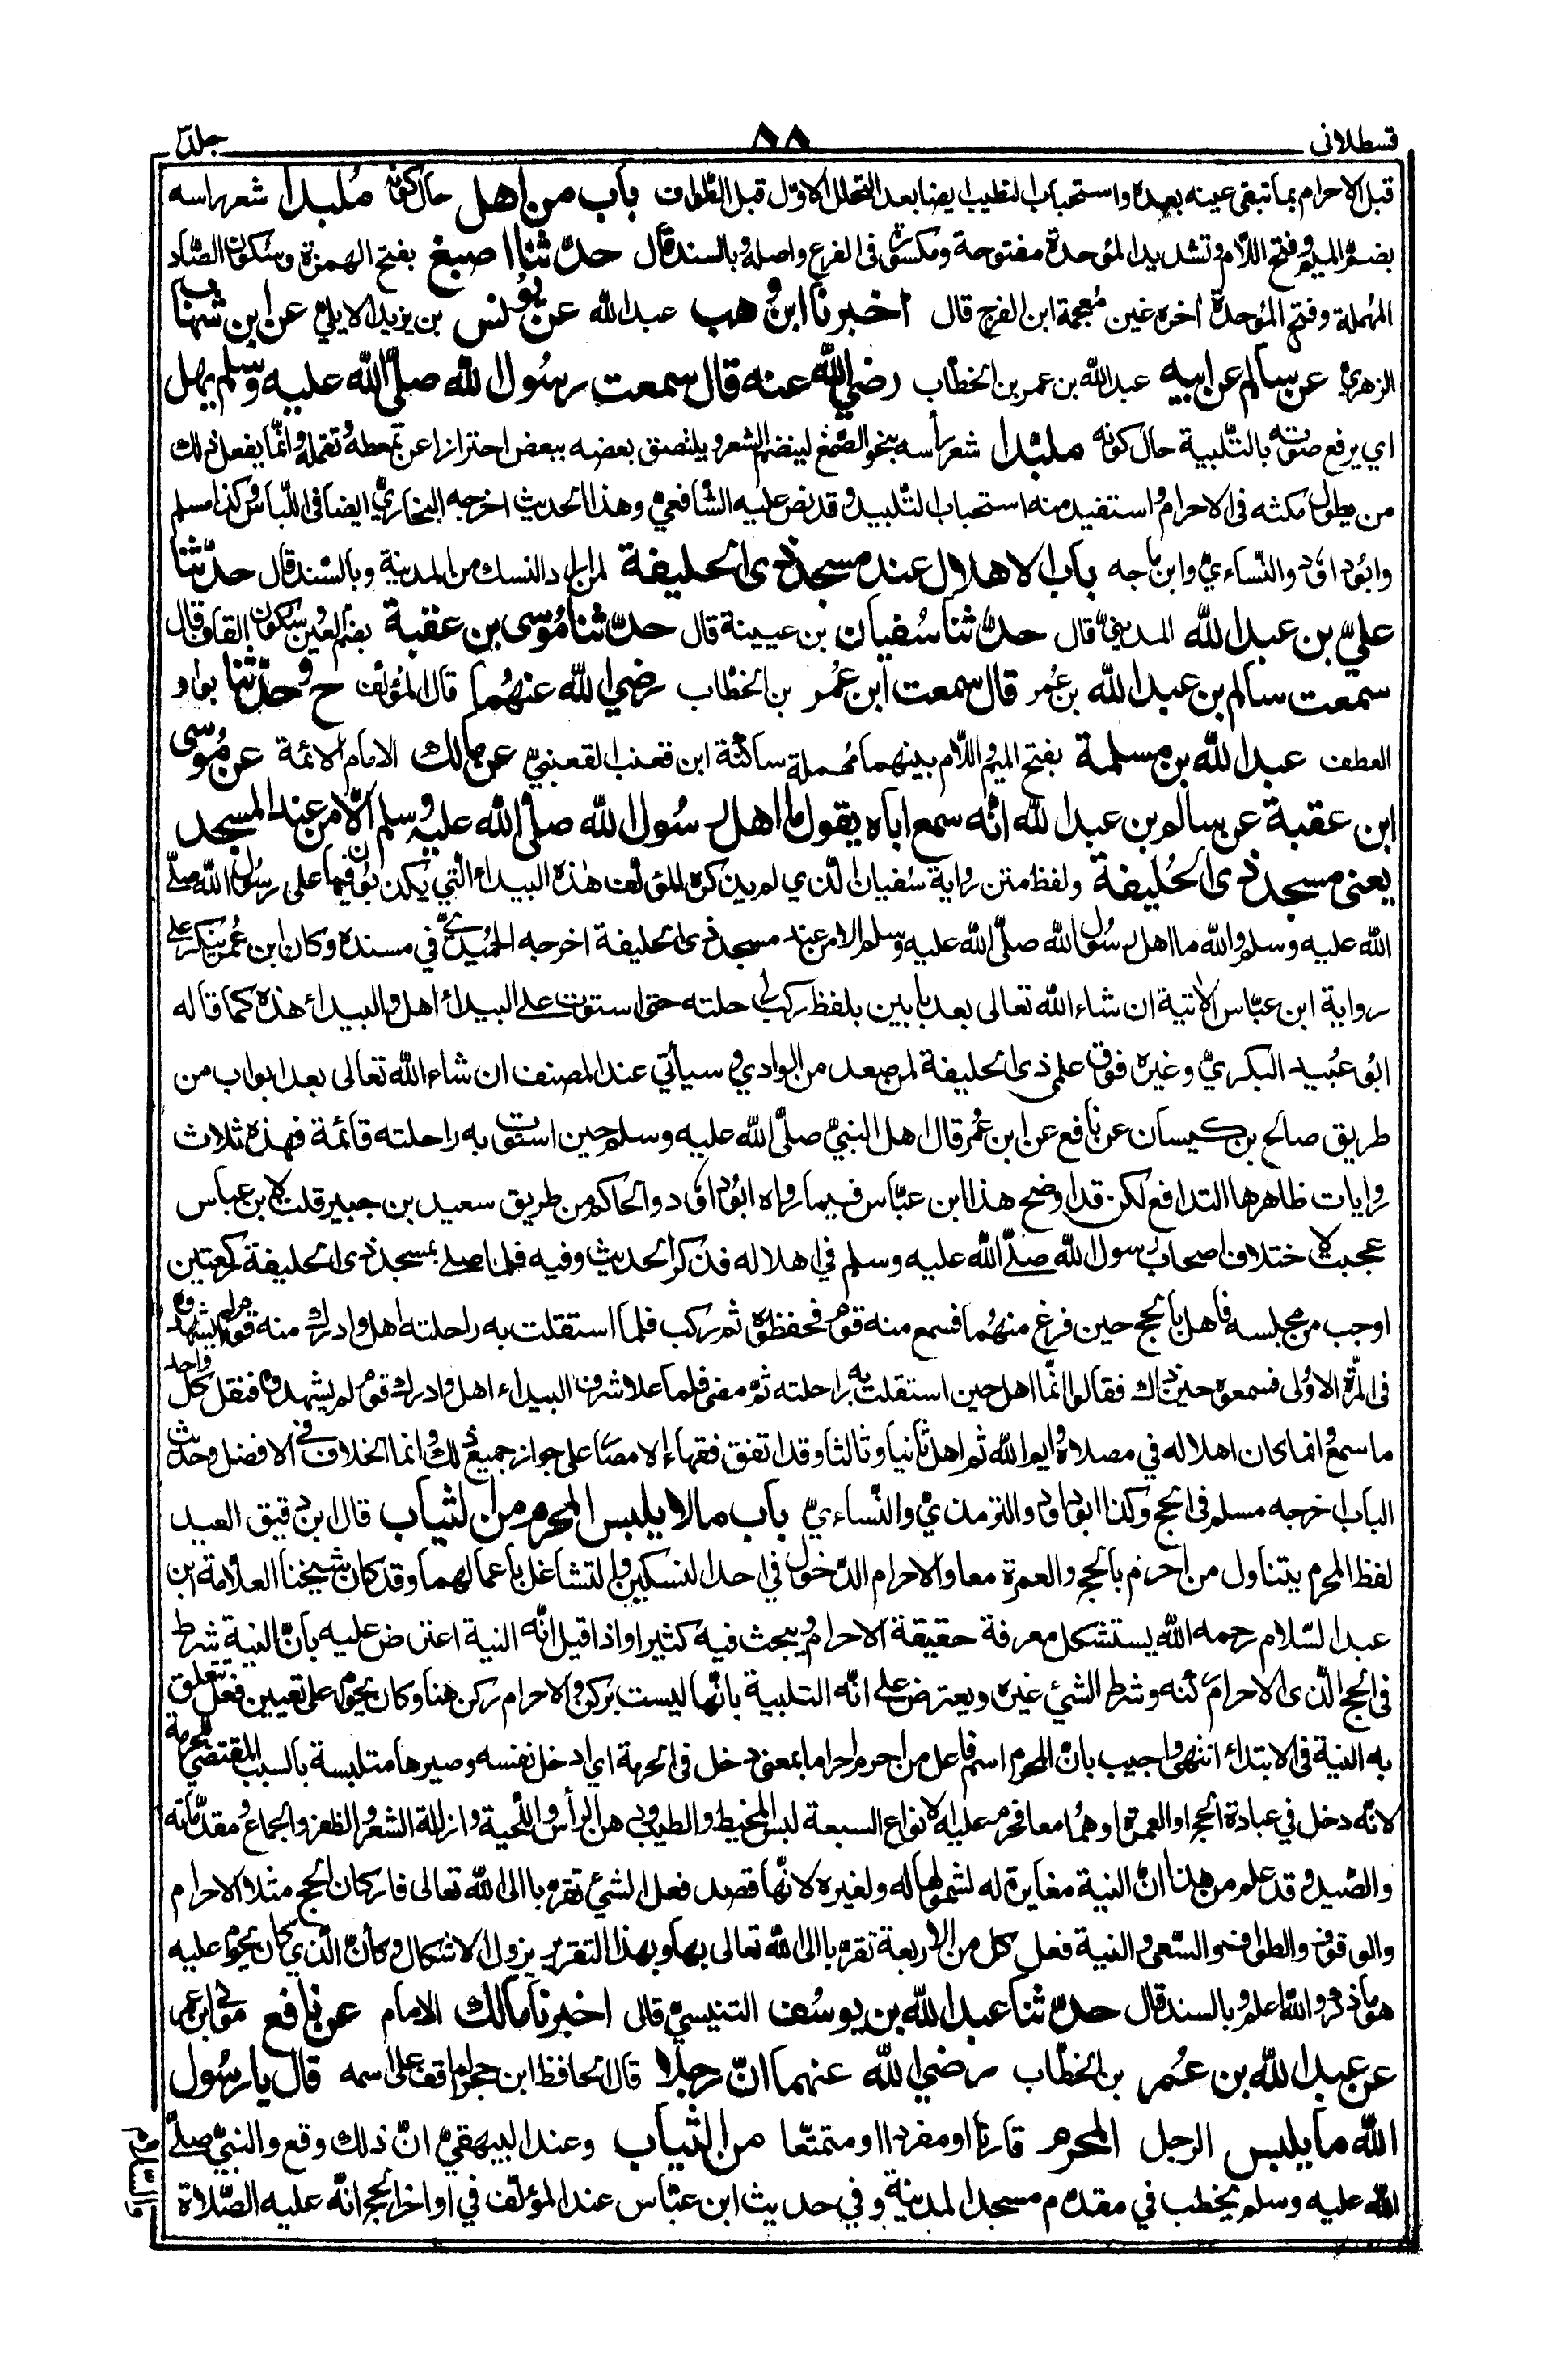 قسطلانى ٨٨ جلد٣
قبل الاحرام بما تبقى عينه بعده واستحباب التطيب ايضا بعد التحلل الاول قبل الطواف باب من اهل حال كونه مُلبدا شعر راسه
بضم الميم وفتح اللام وتشديد الموحدة مفتوحة ومكسورة فى الفرع واصله وبالسند قال حدّثنا اصبغ بفتح الهمزة وسكون الصّاد
المُهملة وفتح المُوحدة اخره غين مُعجمة ابن الفرج قال اخبرنا ابن وهب عبد الله عن يُونس بن يزيد الايلي عن ابن شهاب
الزهري عن سالم عن ابيه عبد الله بن عمر بن الخطاب رضي الله عنه قال سمعت رسُول الله صلّى الله عليه وسلم يهل
اي يرفع صوته بالتّلبية حال كونه ملبّدا شعر رأسه بنحو الصّمغ لينضم الشعر ويلتصق بعضه ببعض احترازا عن تمعطه وتقمله وانّما يفعل ذلك
من يطول مكثه فى الاحرام واستفيد منه استحباب التلبيد وقد نص عليه الشّافعيّ وهذا الحديث اخرجه البخاريّ ايضا فى اللّباس وكذا مسلم
وابُو داود والنّساءيّ وابن ماجه باب الاهلال عند مسجد ذى الحليفة لمن اراد النسك من المدينة وبالسّند قال حدّثنا
عليّ بن عبد الله المدينيّ قال حدّثنا سُفيان بن عيينة قال حدّثنا مُوسى بن عقبة بضم العين وسكون القاف قال
سمعت سالم بن عبد الله بن عُمر قال سمعت ابن عُمر بن الخطّاب رضي الله عنهُما قال المؤلف ح وحدّثنا بواو
العطف عبد الله بن مسلمة بفتح الميم واللّام بينهما مُهملة ساكنة ابن قعنب القعنبيّ عن مالك الامام الائمة عن مُوسى
ابن عقبة عن سالم بن عبد الله انّه سمع اباه يقول ما اهل رسُول الله صلّى الله عليه وسلم الّا من عند المسجد
يعنى مسجد ذى الحُليفة ولفظ متن رواية سُفيان الّذي لم يذكره المؤلّف هٰذه البيداء الّتي يكذبُون فيها على رسُول الله صلّى
الله عليه وسلم والله ما اهل رسُول الله صلّى الله عليه وسلم الا من عند مسجد ذى الحليفة اخرجه الحُميديّ في مسنده وكان ابن عُمر ينكر على
رواية ابن عبّاس الاتية ان شاء الله تعالى بعد بابين بلفظ ركب راحلته حتى استوت على البيداء اهل والبيداء هذه كما قاله
ابُو عُبيد البكريّ وغيره فوق علمى ذى الحليفة لمن صعد من الوادي وسيأتي عند المصنف ان شاء الله تعالى بعد ابواب من
طريق صالح بن كيسان عن نافع عن ابن عُمر قال اهل النبيّ صلّى الله عليه وسلم حين استوت به راحلته قائمة فهذه ثلاث
روايات ظاهرها التدافع لكن قد اوضح هذا ابن عبّاس فيما رواه ابُو داود والحاكم من طريق سعيد بن جبير قلت لابن عباس
عجبت لاختلاف اصحاب رسول الله صلّى الله عليه وسلم في اهلاله فذكر الحديث وفيه فلما صلى بمسجد ذى الحليفة ركعتين
اوجب من مجلسه فاهل بالحج حين فرغ منهُما فسمع منه قوم فحفظوه ثم ركب فلما استقلت به راحلته اهل وادرك منه قوم لم يشهدوه
فى المرّة الاولى فسمعوه حين ذاك فقالوا انّما اهل حين استقلت به راحلته ثمّ مضى فلما علا شرف البيداء اهل وادرك قوم لم يشهدوه فنقل كل واحد
ما سمع وانما كان اهلاله في مصلاه وايم الله ثم اهل ثانيا وثالثا وقد اتفق فقهاء الامصار على جواز جميع ذلك وانما الخلاف في الافضل وحديث
الباب اخرجه مسلم فى الحج وكذا ابو داود والترمذيّ والنّساءيّ باب ما لا يلبس المحرم من الثياب قال ابن دقيق العيد
لفظ المحرم يتناول من احرم بالحج والعمرة معا والاحرام الدّخول في احد النسكين والتشاغل باعمالهما وقد كان شيخنا العلّامة ابن
عبد السّلام رحمه الله يستشكل معرفة حقيقة الاحرام ويبحث فيه كثيرا واذا قيل انّه النية اعترض عليه بانّ النية شرط
فى الحج الّذى الاحرام ركنه وشرط الشئ غيره ويعترض على انّه التلبية بانّها ليست بركن والاحرام ركن هنا وكان يحوم على تعيين فعل يتعلق
به النية فى الابتداء انتهى واجيب بانّ المحرم اسم فاعل من احرم احراما بمعنى دخل فى الحرمة اي ادخل نفسه وصيرها متلبسة بالسبب المقتضي للحرمة
لانّه دخل في عبادة الحج او العمرة او هُما معا فحرم عليه الانواع السبعة لبس المخيط والطيب ودهن الرأس واللّحية وازالة الشعر والظفر والجماع ومقدّماته
والصّيد وقد علم من هذا انّ النية مغايرة له لشمولها له ولغيره لانّها قصد فعل الشئ تقرّبا الى الله تعالى فاركان الحج مثلا الاحرام
والوقوف والطواف والسّعي والنية فعل كل من الاربعة تقرّبا الى الله تعالى بها وبهذا التقرير يزول الاشكال وكأنّ الّذي كان يحوم عليه
هو ما ذكر والله اعلم وبالسند قال حدّثنا عبد الله بن يوسُف التنيسيّ قال اخبرنا مالك الامام عن نافع مولى ابن عمر
عن عبد الله بن عُمر بن الخطّاب رضي الله عنهما انّ رجلا قال الحافظ ابن حجر لم اقف على اسمه قال يا رسُول
الله ما يلبس الرجل المحرم قارنا او مفردا او متمتّعا من الثياب وعند البيهقيّ انّ ذلك وقع والنبيّ صلّى
الله عليه وسلم يخطب في مقدّم مسجد المدينة وفي حديث ابن عبّاس عند المؤلّف في اواخر الحج انّه عليه الصّلاة
والسّلام